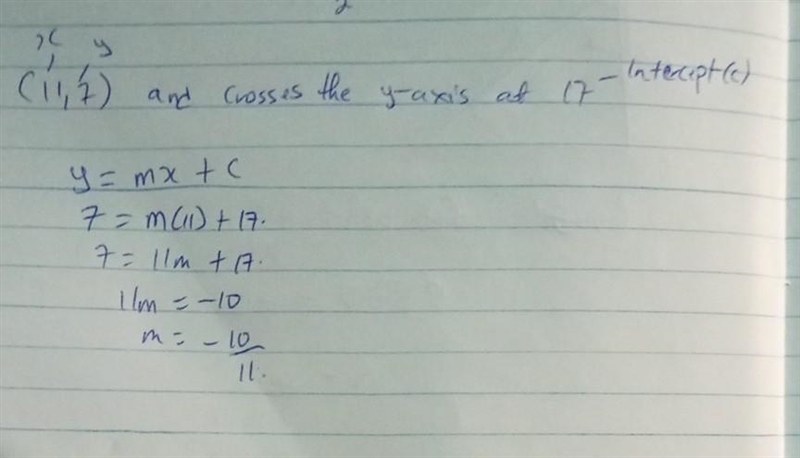 x y
(11,7) and crosses the y-axis at 17 - Intercept(c)
y = mx + c
7 = m(11) + 17.
7 = 11m + 17.
11m = -10
m = - 10
11.